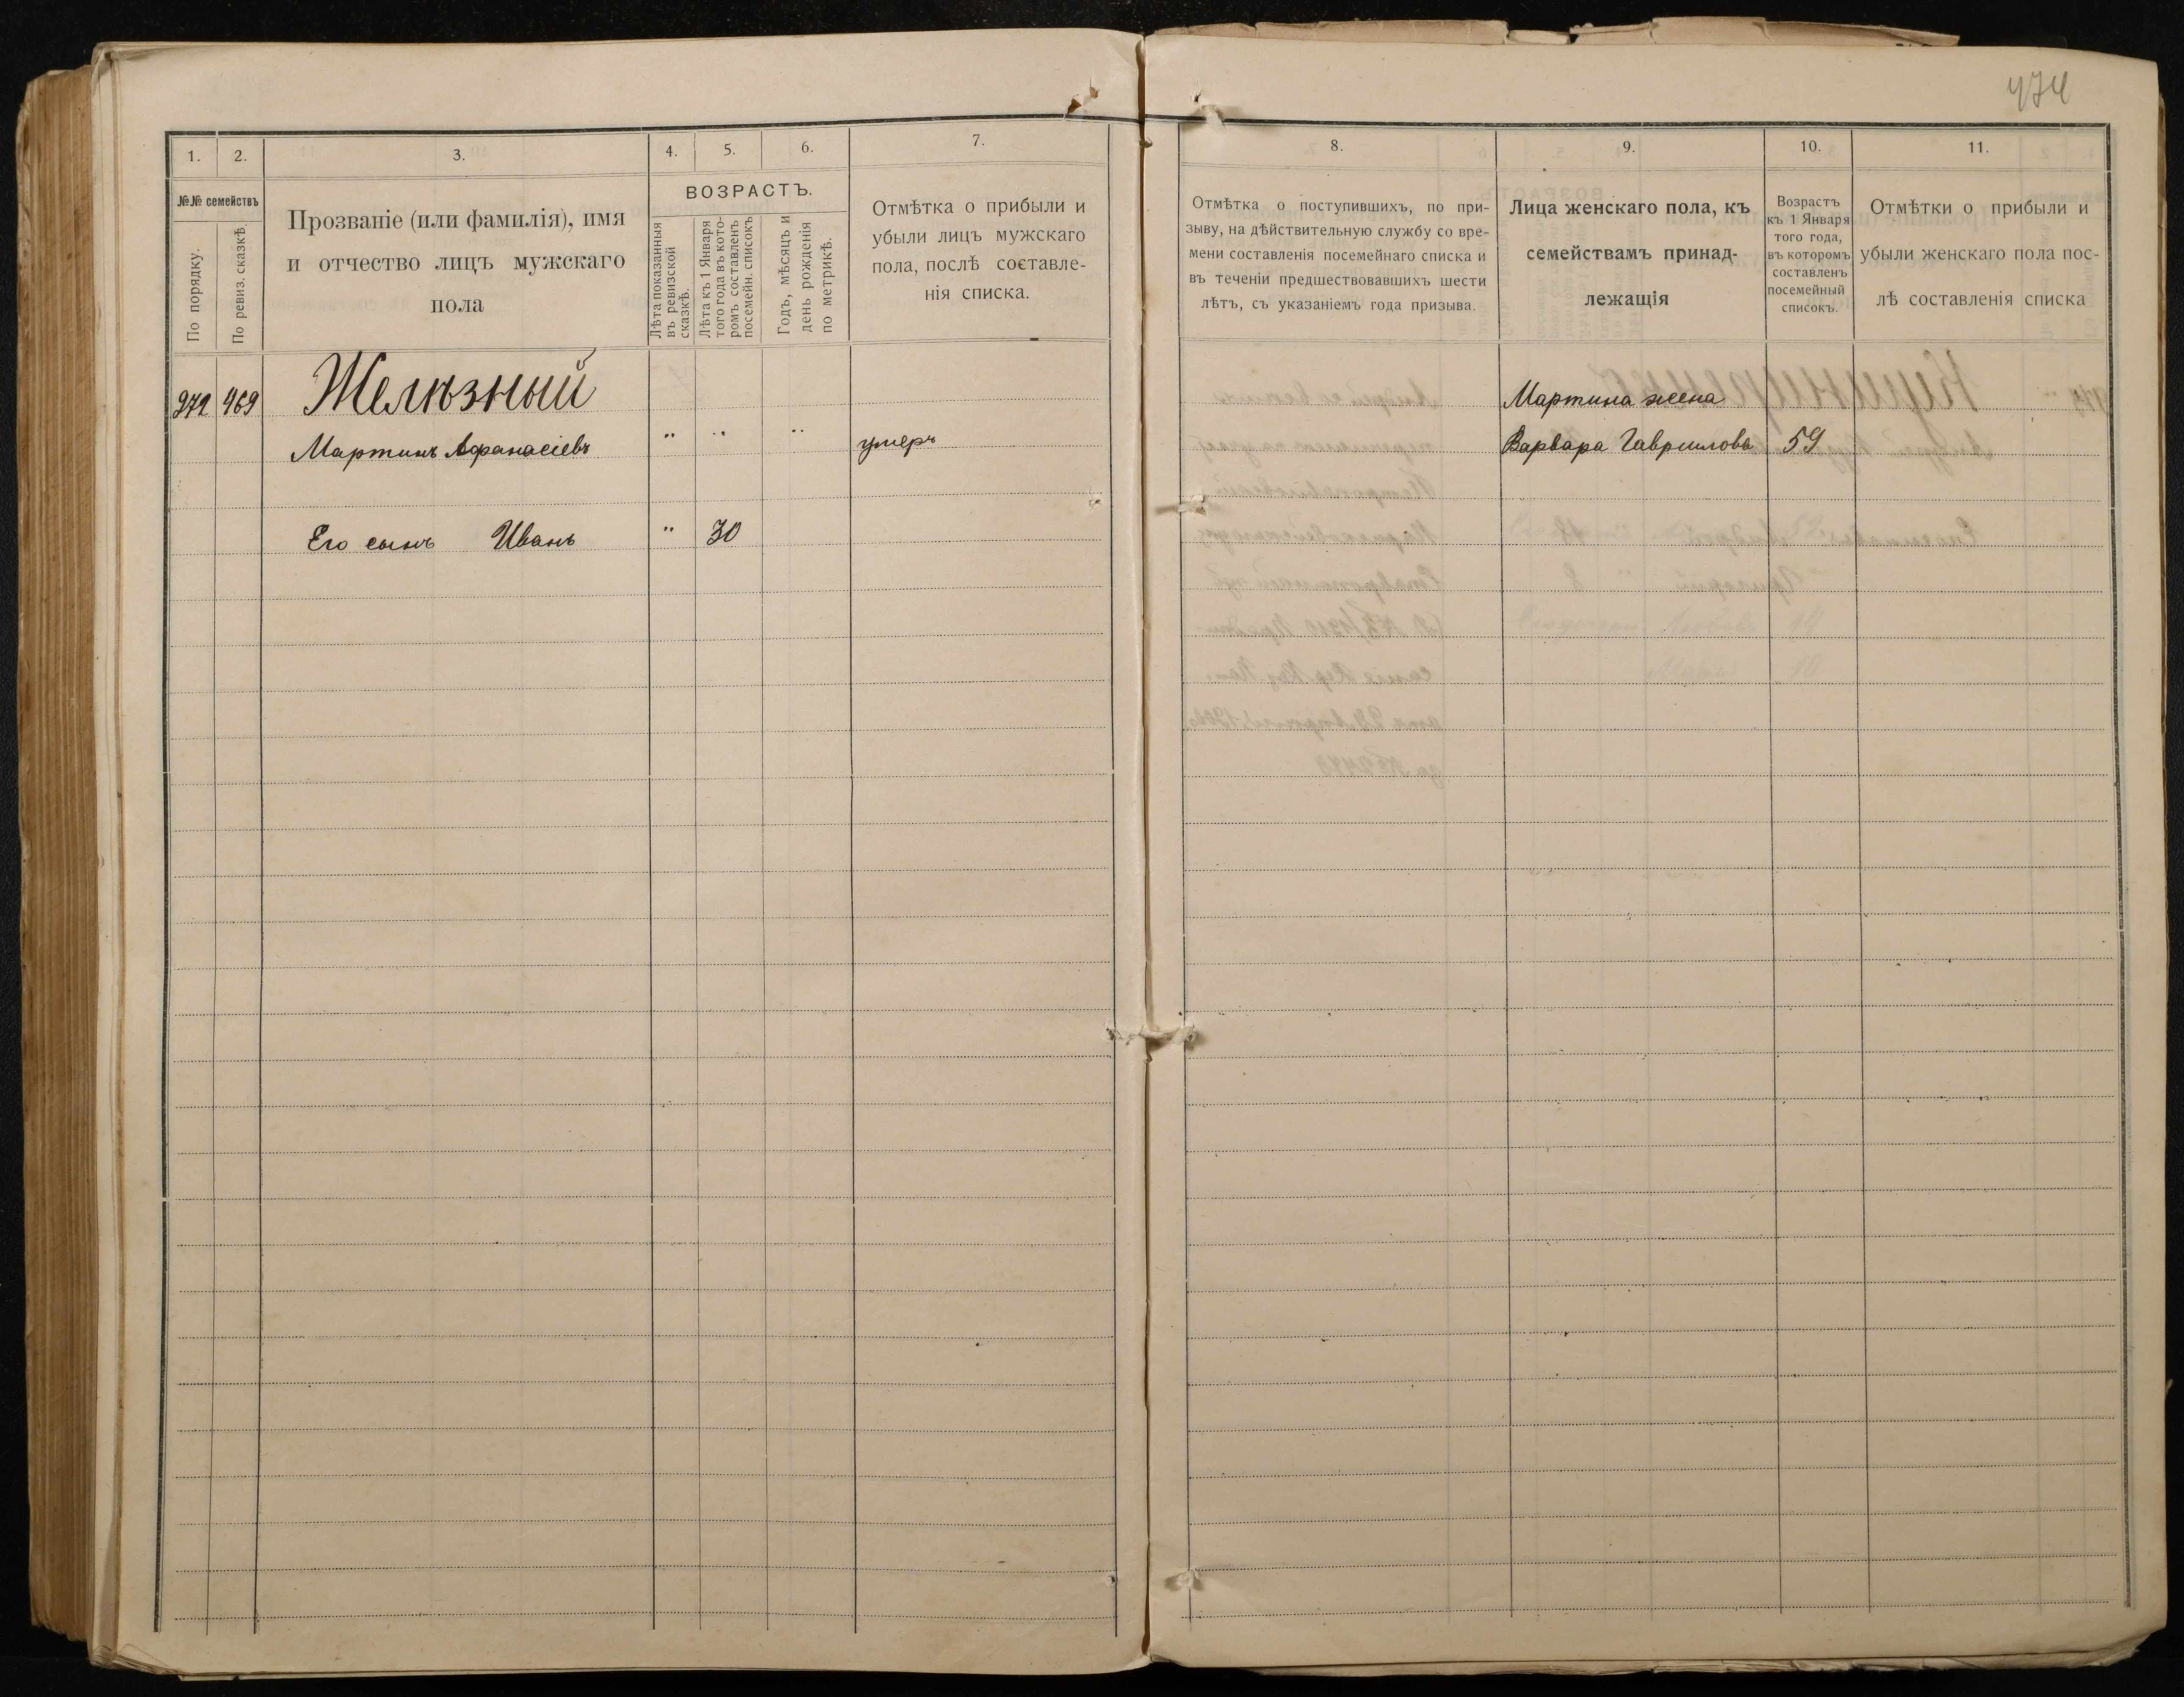 474
1. 2. 3. 4. 5. 6. 7.
№№ семействъ
По порядку.
По ревиз. сказкѣ.
Прозваніе (или фамилія), имя
и отчество лицъ мужскаго
пола
ВОЗРАСТЪ.
Лѣта показанныя
въ ревизской
сказкѣ.
Лѣта къ 1 Января
того года въ кото-
ромъ составленъ
посемейн. списокъ
Годъ, мѣсяцъ и
день рожденія
по метрикѣ.
Отмѣтка о прибыли и
убыли лицъ мужскаго
пола, послѣ составле-
нія списка.
469 Желѣзный
Мартинъ Афанасіевъ " " " умеръ
Его сынъ Иванъ " 30
8. 9. 10. 11.
Отмѣтка о поступившихъ, по при-
зыву, на дѣйствительную службу со вре-
мени составленія посемейнаго списка и
въ теченіи предшествовавшихъ шести
лѣтъ, съ указаніемъ года призыва.
Лица женскаго пола, къ
семействамъ принад-
лежащія
Возрастъ
къ 1 Января
того года,
въ которомъ
составленъ
посемейный
списокъ.
Отмѣтки о прибыли и
убыли женскаго пола пос-
лѣ составленія списка
Мартина жена
Варвара Гаврилова 59